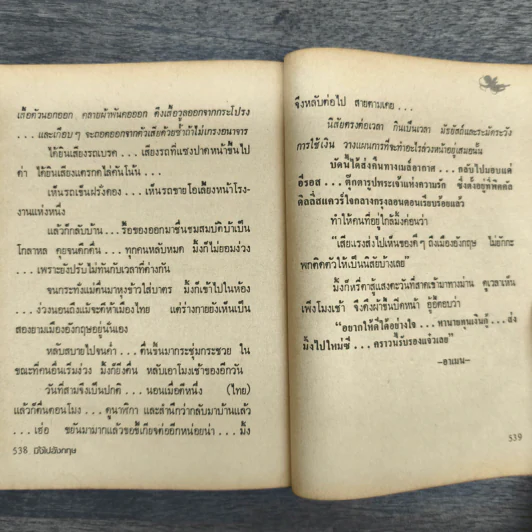 เสื้อตัวนอกออก คลายผ้าพันคอออก ดึงเสื้อวูลออกจากกระโปรง
... และเกือบๆ จะถอดออกจากตัวเสียด้วยซ้ำถ้าไม่เกรงอนาจาร
ได้ยินเสียงรถเบรค ... เสียงรถที่แซงปาดหน้าขึ้นไป
ด่า ได้ยินเสียงแตรกดไล่กันโน่น ...
เห็นรถเข็นฝรั่งดอง ... เห็นรถขายโอเลี้ยงหน้าโรง-
งานแห่งหนึ่ง
แล้วก็กลับบ้าน ... รื้อของออกมาชื่นชมสมบัติบ้าเป็น
โกลาหล คุยจนดึกดื่น ... ทุกคนหลับหมด มิ้งก็ไม่ยอมง่วง
... เพราะยังปรับไม่ทันกับเวลาที่ต่างกัน
จนกระทั่งแม่ตื่นมาหุงข้าวใส่บาตร มิ้งก็เข้าไปในห้อง
... ง่วงนอนถึงแม้จะตีห้าเมืองไทย แต่ร่างกายยังเห็นเป็น
สองยามเมืองอังกฤษอยู่นั่นเอง
หลับสบายไปจนค่ำ ... ตื่นขึ้นมากระชุ่มกระชวย ใน
ขณะที่คนอื่นเริ่มง่วง มิ้งก็ยิ่งตื่น หลับเอาโมงเช้าของอีกวัน
วันที่สามจึงเป็นปกติ ... นอนเมื่อตีหนึ่ง (ไทย)
แล้วก็ตื่นตอนโมง ... ดูนาฬิกา และสำนึกว่ากลับมาบ้านแล้ว
... เฮ่อ ขยันมามากแล้วขอขี้เกียจต่ออีกหน่อยน่า ... มิ้ง
538 มีไว้ไปอังกฤษ
จึงหลับต่อไป สายตามเคย ...
นิสัยตรงต่อเวลา กินเป็นเวลา มัธยัสถ์และระมัดระวัง
การใช้เงิน วางแผนการที่จะทำอะไรล่วงหน้าอยู่เสมอนั้น
บัดนี้ได้ส่งคืนทางเมล์อากาศ ... กลับไปมอบแด่
อีรอส ... ตุ๊กตารูปพระเจ้าแห่งความรัก ซึ่งตั้งอยู่ที่พิคคัล
ดิลลี่สแควร์ใจกลางกรุงลอนดอนเรียบร้อยแล้ว
ทำให้คนที่อยู่ใกล้มิ้งค่อนว่า
"เสียแรงส่งไปเห็นของดีๆ ถึงเมืองอังกฤษ ไม่ยักกะ
พกติดตัวให้เป็นนิสัยบ้างเลย"
มิ้งก็หรี่ตาสู้แสงตะวันที่สาดเข้ามาทางม่าน ดูเวลาเห็น
เพิ่งโมงเช้า จึงดึงผ้าขึ้นปิดหน้า อู้อี้ตอบว่า
"อยากให้ดีได้อย่างใจ ... หาบาทยูเงินกู้ ... ส่ง
มิ้งไปใหม่ซี ... คราวนี้รับรองแจ๋วเลย"
-อาเมน-
539